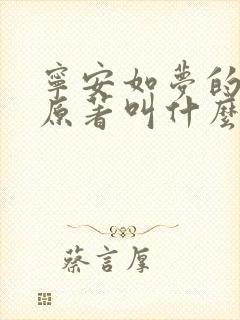 寧安如夢的
原著叫什麼
蔡言厚